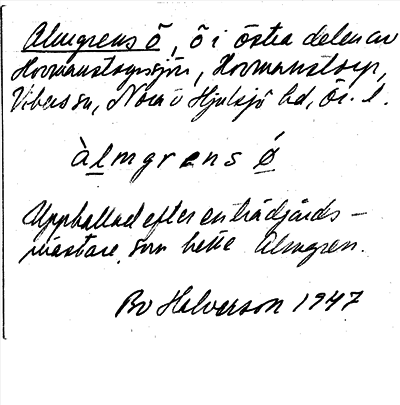 Almgrens ö, ö i östra delen av
Hovmanstorpssjön, Hovmanstorp,
sn, Nora o Hjulsjö hd, Ör. l.
àlmgrens ö́
Uppkallad efter en trädgårds-
mästare, som hette Almgren.
Bo Halverson 1947